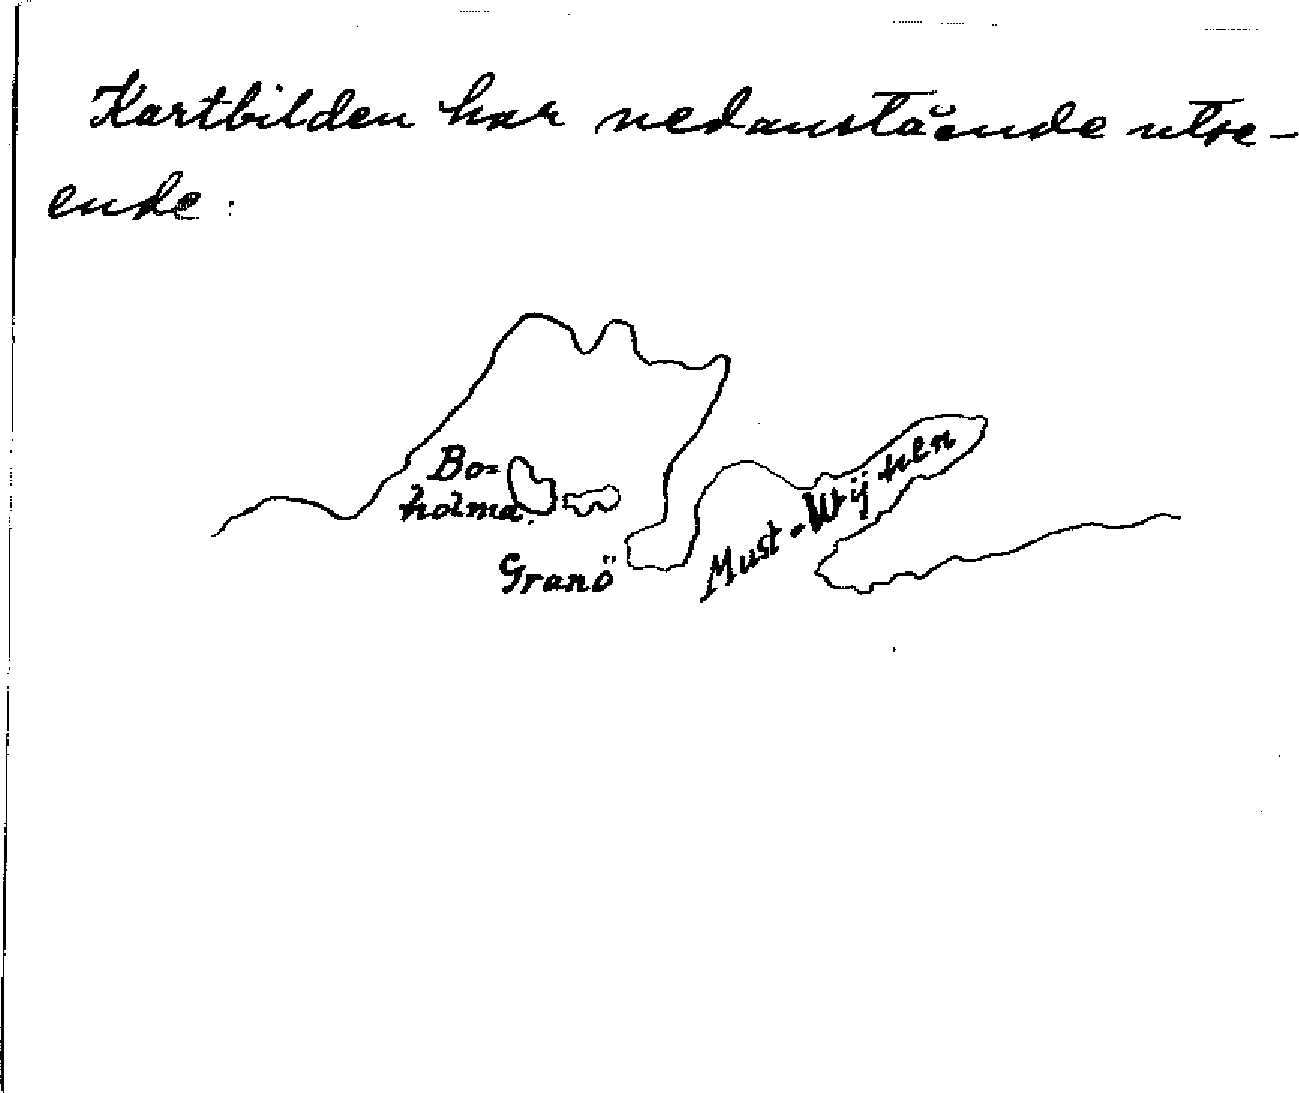 Kartbilden har nedanstående utse-
ende:
Bo=
holma.
Granö
Must-Wijken